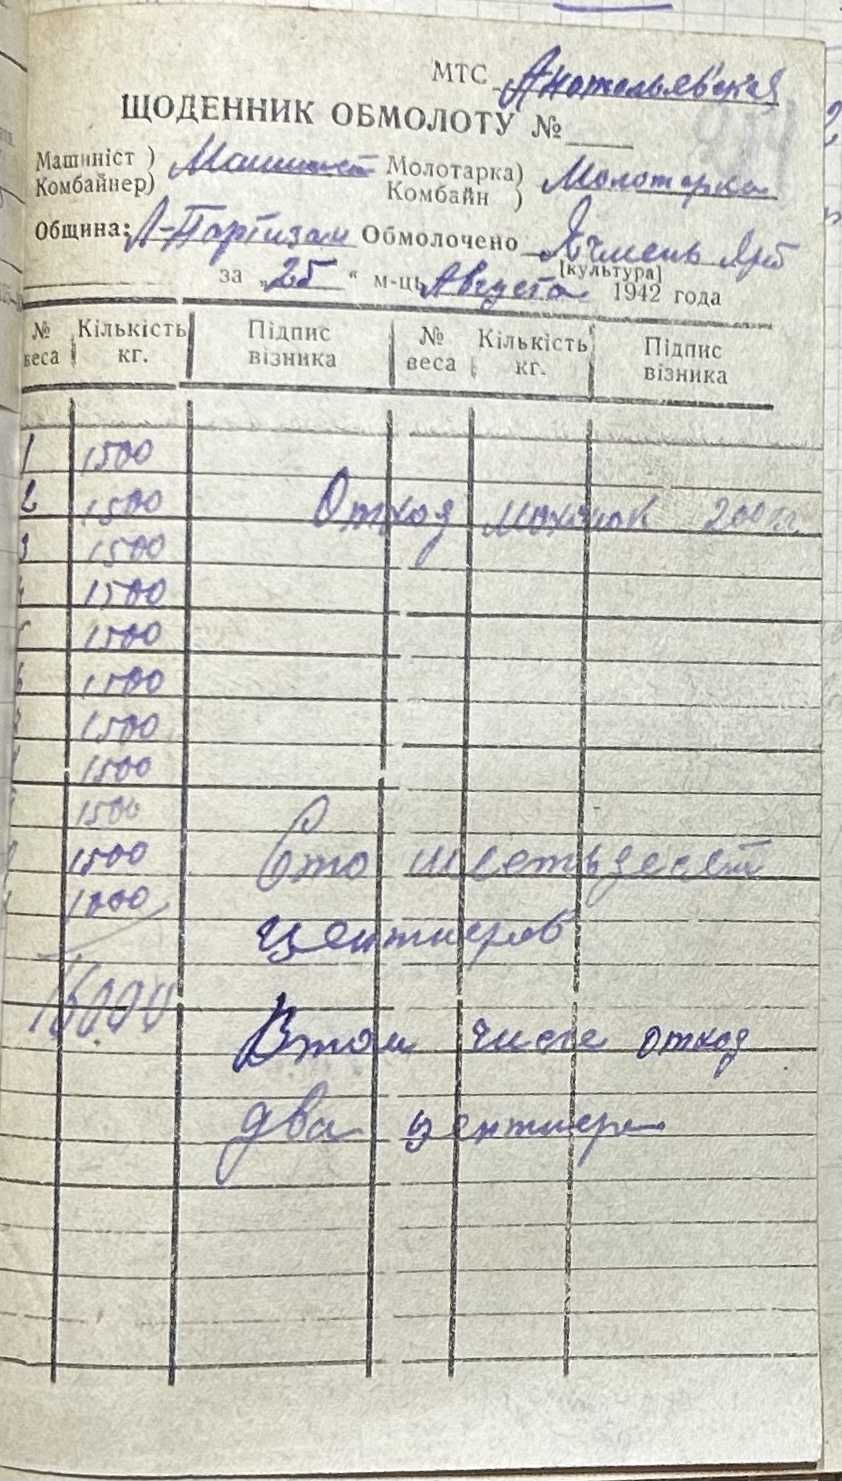 МТС Анатольевская
ЩОДЕННИК ОБМОЛОТУ №
Машиніст ) Машинист Молотарка) Молотарка
Комбайнер) Комбайн )
Община: Л-Партизан Обмолочено Ячмень Яро
[культура]
за „25“ м-ць Августа 1942 года
№ веса Кількість кг. Підпис візника № веса Кількість кг. Підпис візника
1 1500
2 1500 Отход 200 кг
3 1500
4 1500
5 1500
6 1500
1500
1500
1500
1500 Сто шестьдесят
1000 центнеров
16000 Втом числе отход
два центнера